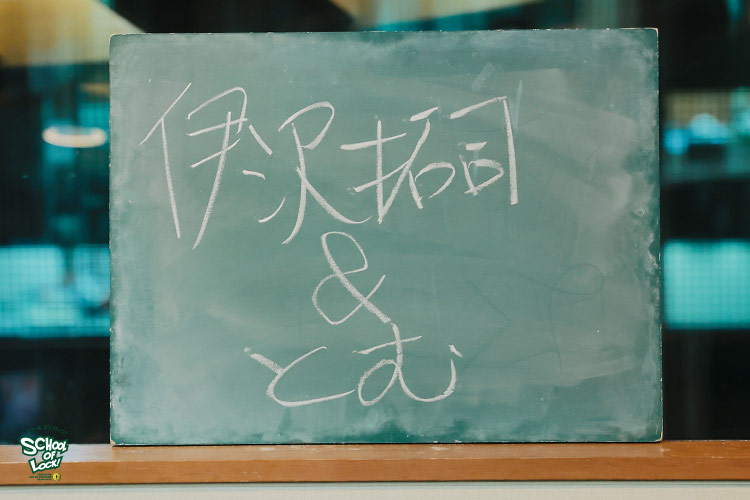 伊沢拓司
&
とむ
SCHOOL
OF
LOCK!